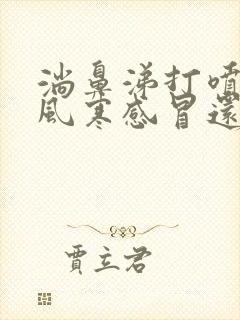 淌鼻涕打噴
風寒感冒還
賈立君